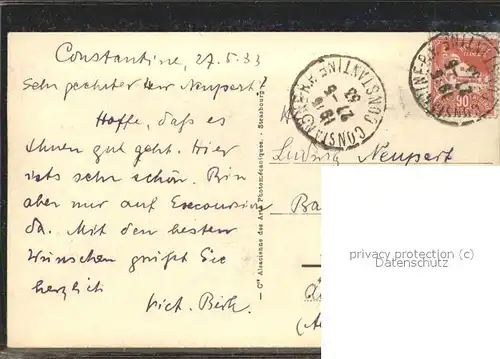 Constantine, 27.5.33
Sehr geehrter Herr Neupert!
Hoffe, daß es
Ihnen gut geht. Hier
ists sehr schön. Bin
aber nur auf Excursion
da. Mit den besten
Wünschen grüßt Sie
herzlich
Vict. Birk.
— Cie Alsacienne des Arts Photomécaniques. - Strasbourg
CONSTANTINE R.P.
27 - 5
33
90
Ludwig Neupert
Ba
privacy protection (c)
Datenschutz